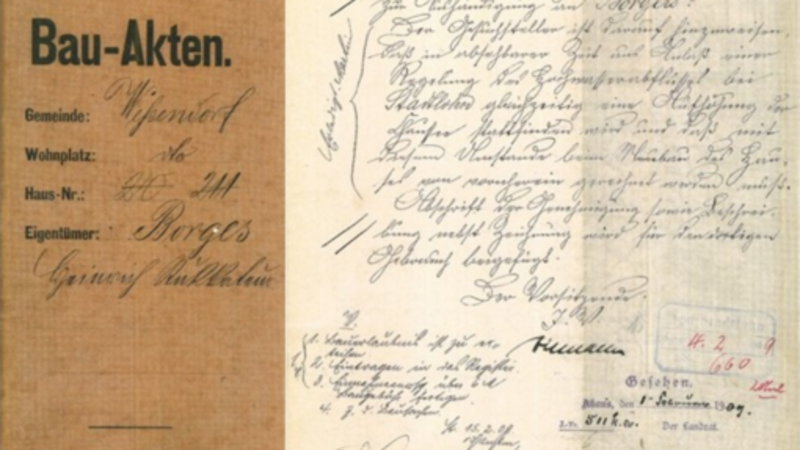 Bau-Akten.
Gemeinde: Wessendorf
Wohnplatz: do
Haus-Nr.: 20 211
Eigentümer: Borges
Heinrich
zur Aushändigung an Borges:
Der Gesuchsteller ist darauf hinzuweisen,
daß in absehbarer Zeit aus Anlaß einer
Regelung des Hochwasserabflusses bei
Stadtlohn gleichzeitig eine Aufhöhung der
Chaussee stattfinden wird und daß mit
diesem Umstande beim Neubau des Hau-
ses von vornherein gerechnet werden muß.
Abschrift der Genehmigung sowie Beschrei-
bung nebst Zeichnung wird für den dortigen
Gebrauch beigefügt.
Der Vorsitzende.
J. V.
1. Bauerlaubnis ist zu er-
teilen
2. Eintragen in das Register
3.
4. Z. d. Bauakten
St. 15.2.09
H. 2 9
660
Gesehen.
Ahaus, den 1. Februar 1909.
J.-Nr. 511
Der Landrat.